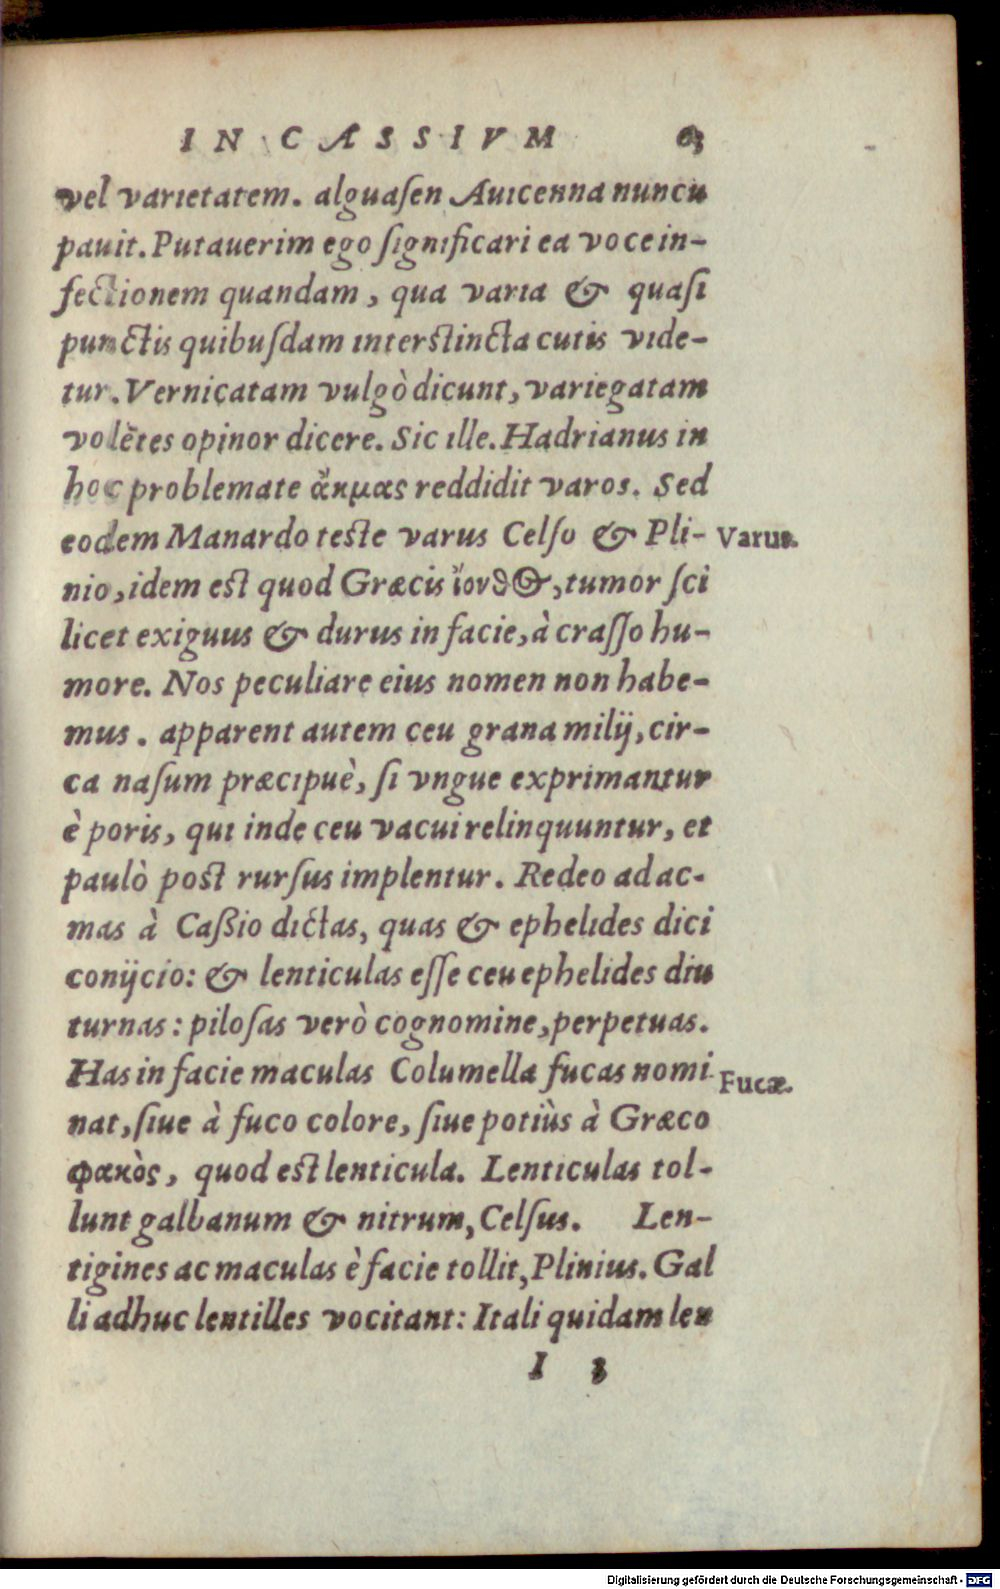 IN CASSIVM 63
vel varietatem. alguaſen Auicenna nuncu
pauit. Putauerim ego ſignificari ea voce in-
fectionem quandam, qua varia & quaſi
punctis quibuſdam interſtincta cutis vide-
tur. Vernicatam vulgò dicunt, variegatam
volẽtes opinor dicere. Sic ille. Hadrianus in
hoc problemate ἄκμας reddidit varos. Sed
eodem Manardo teſte varus Celſo & Pli-
Varus.
nio, idem eſt quod Græcis ἴονθος, tumor ſci
licet exiguus & durus in facie, à craſſo hu-
more. Nos peculiare eius nomen non habe-
mus. apparent autem ceu grana milij, cir-
ca naſum præcipuè, ſi vngue exprimantur
è poris, qui inde ceu vacui relinquuntur, et
paulò poſt rurſus implentur. Redeo ad ac-
mas à Caßio dictas, quas & ephelides dici
conijcio: & lenticulas eſſe ceu ephelides diu
turnas: piloſas verò cognomine, perpetuas.
Has in facie maculas Columella fucas nomi
Fucæ.
nat, ſiue à fuco colore, ſiue potiùs à Græco
φακὸς, quod eſt lenticula. Lenticulas tol-
lunt galbanum & nitrum, Celſus. Len-
tigines ac maculas è facie tollit, Plinius. Gal
li adhuc lentilles vocitant: Itali quidam len
I 3
Digitalisierung gefördert durch die Deutsche Forschungsgemeinschaft - DFG